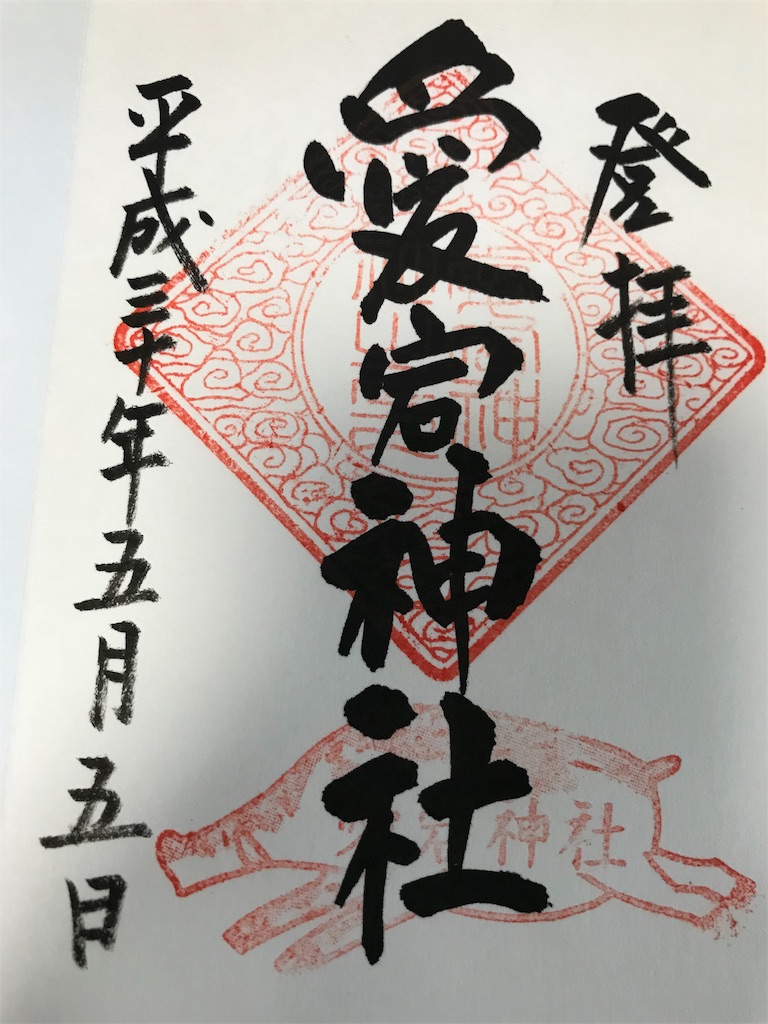 登拝
愛宕神社
平成三十年五月五日
愛宕神社